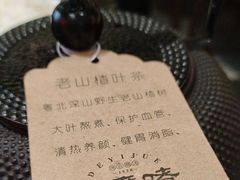 老山楂叶茶
粤北深山野生老山楂树
大叶熬煮、保护血管、
清热养颜、健胃消脂、
DEYIJUE